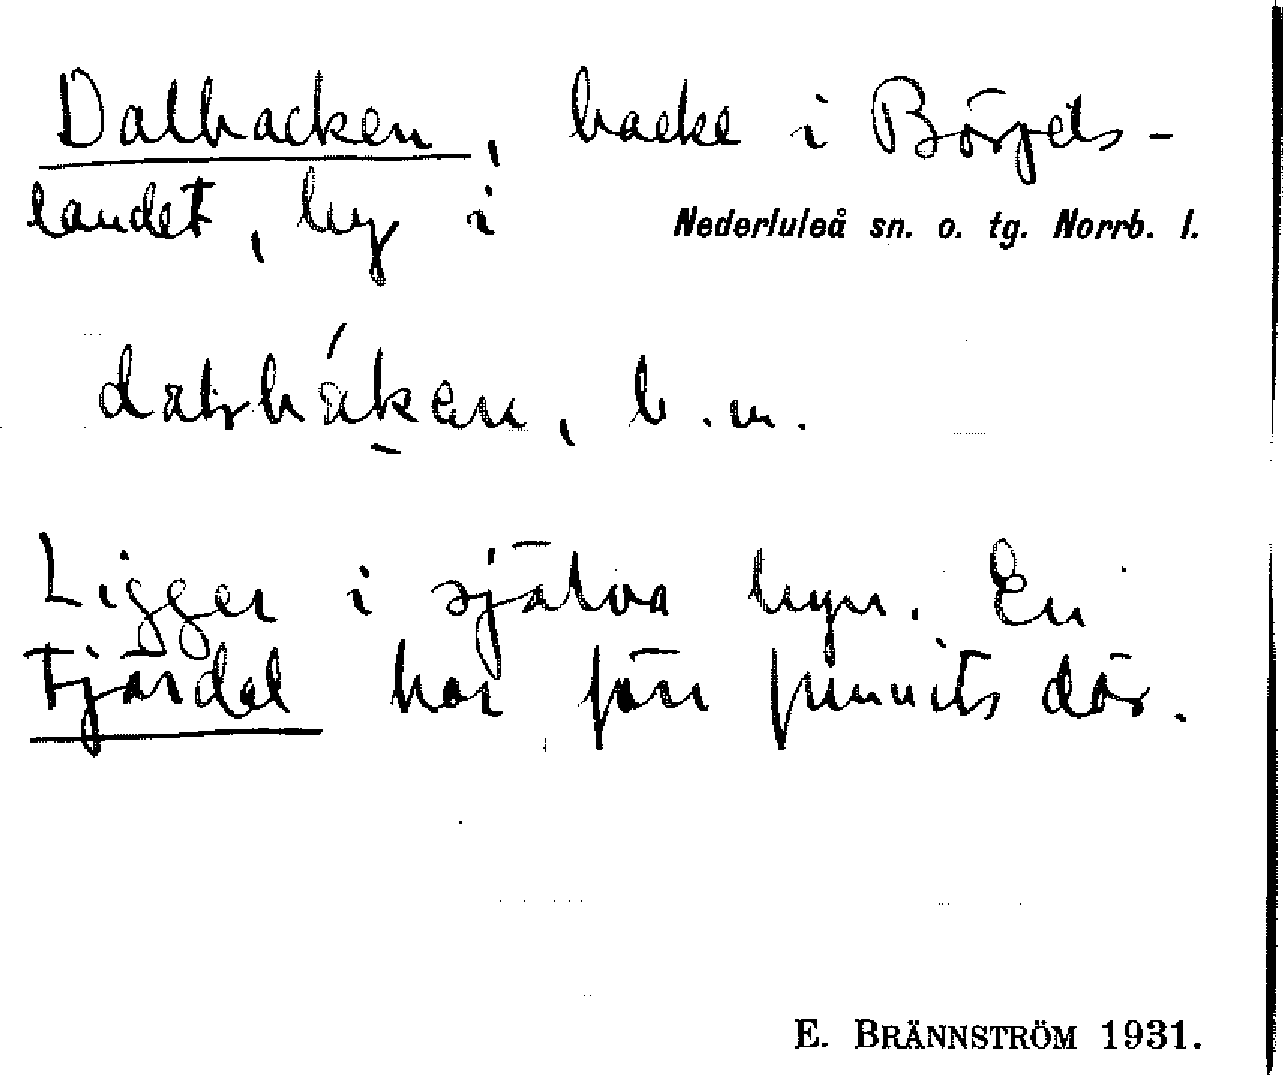 Dalbacken, backe i Börjels-
landet, by i Nederluleå sn. o. tg. Norrb. l.
b. m.
Ligger i själva byn. En
Tjärdal har förr funnits där.
E. BRÄNNSTRÖM 1931.